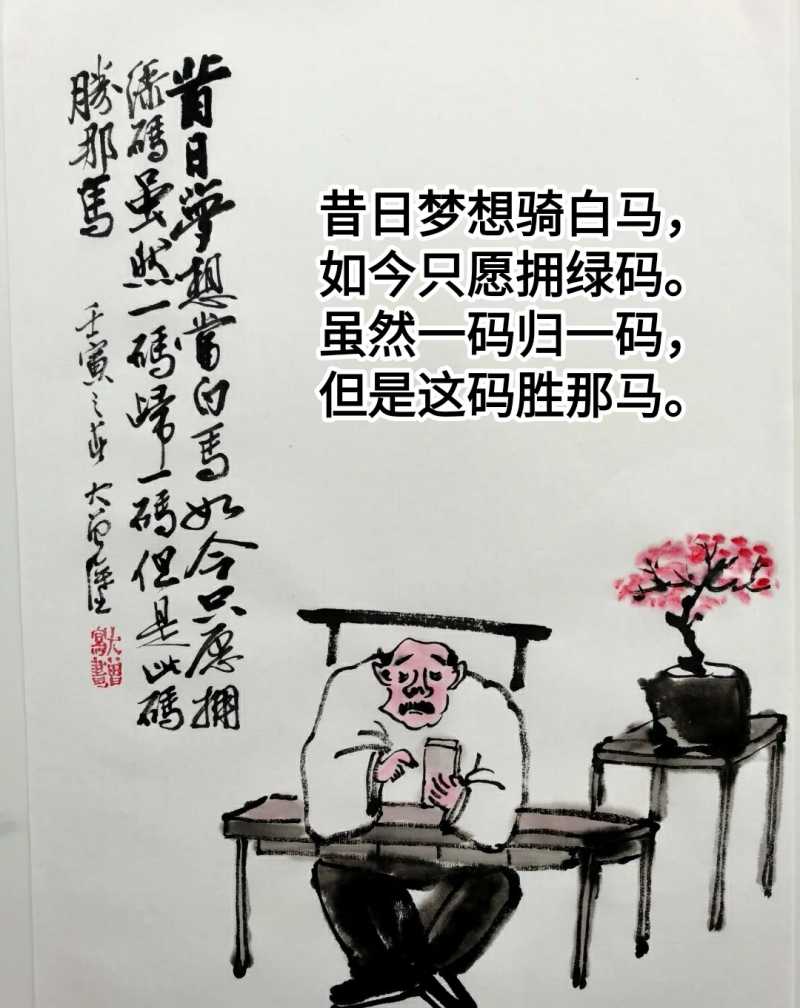 昔日夢想當白馬如今只愿拥
绿碼虽然一碼歸一碼但是此碼
勝那馬
壬寅之春大曾
昔日梦想骑白马，
如今只愿拥绿码。
虽然一码归一码，
但是这码胜那马。